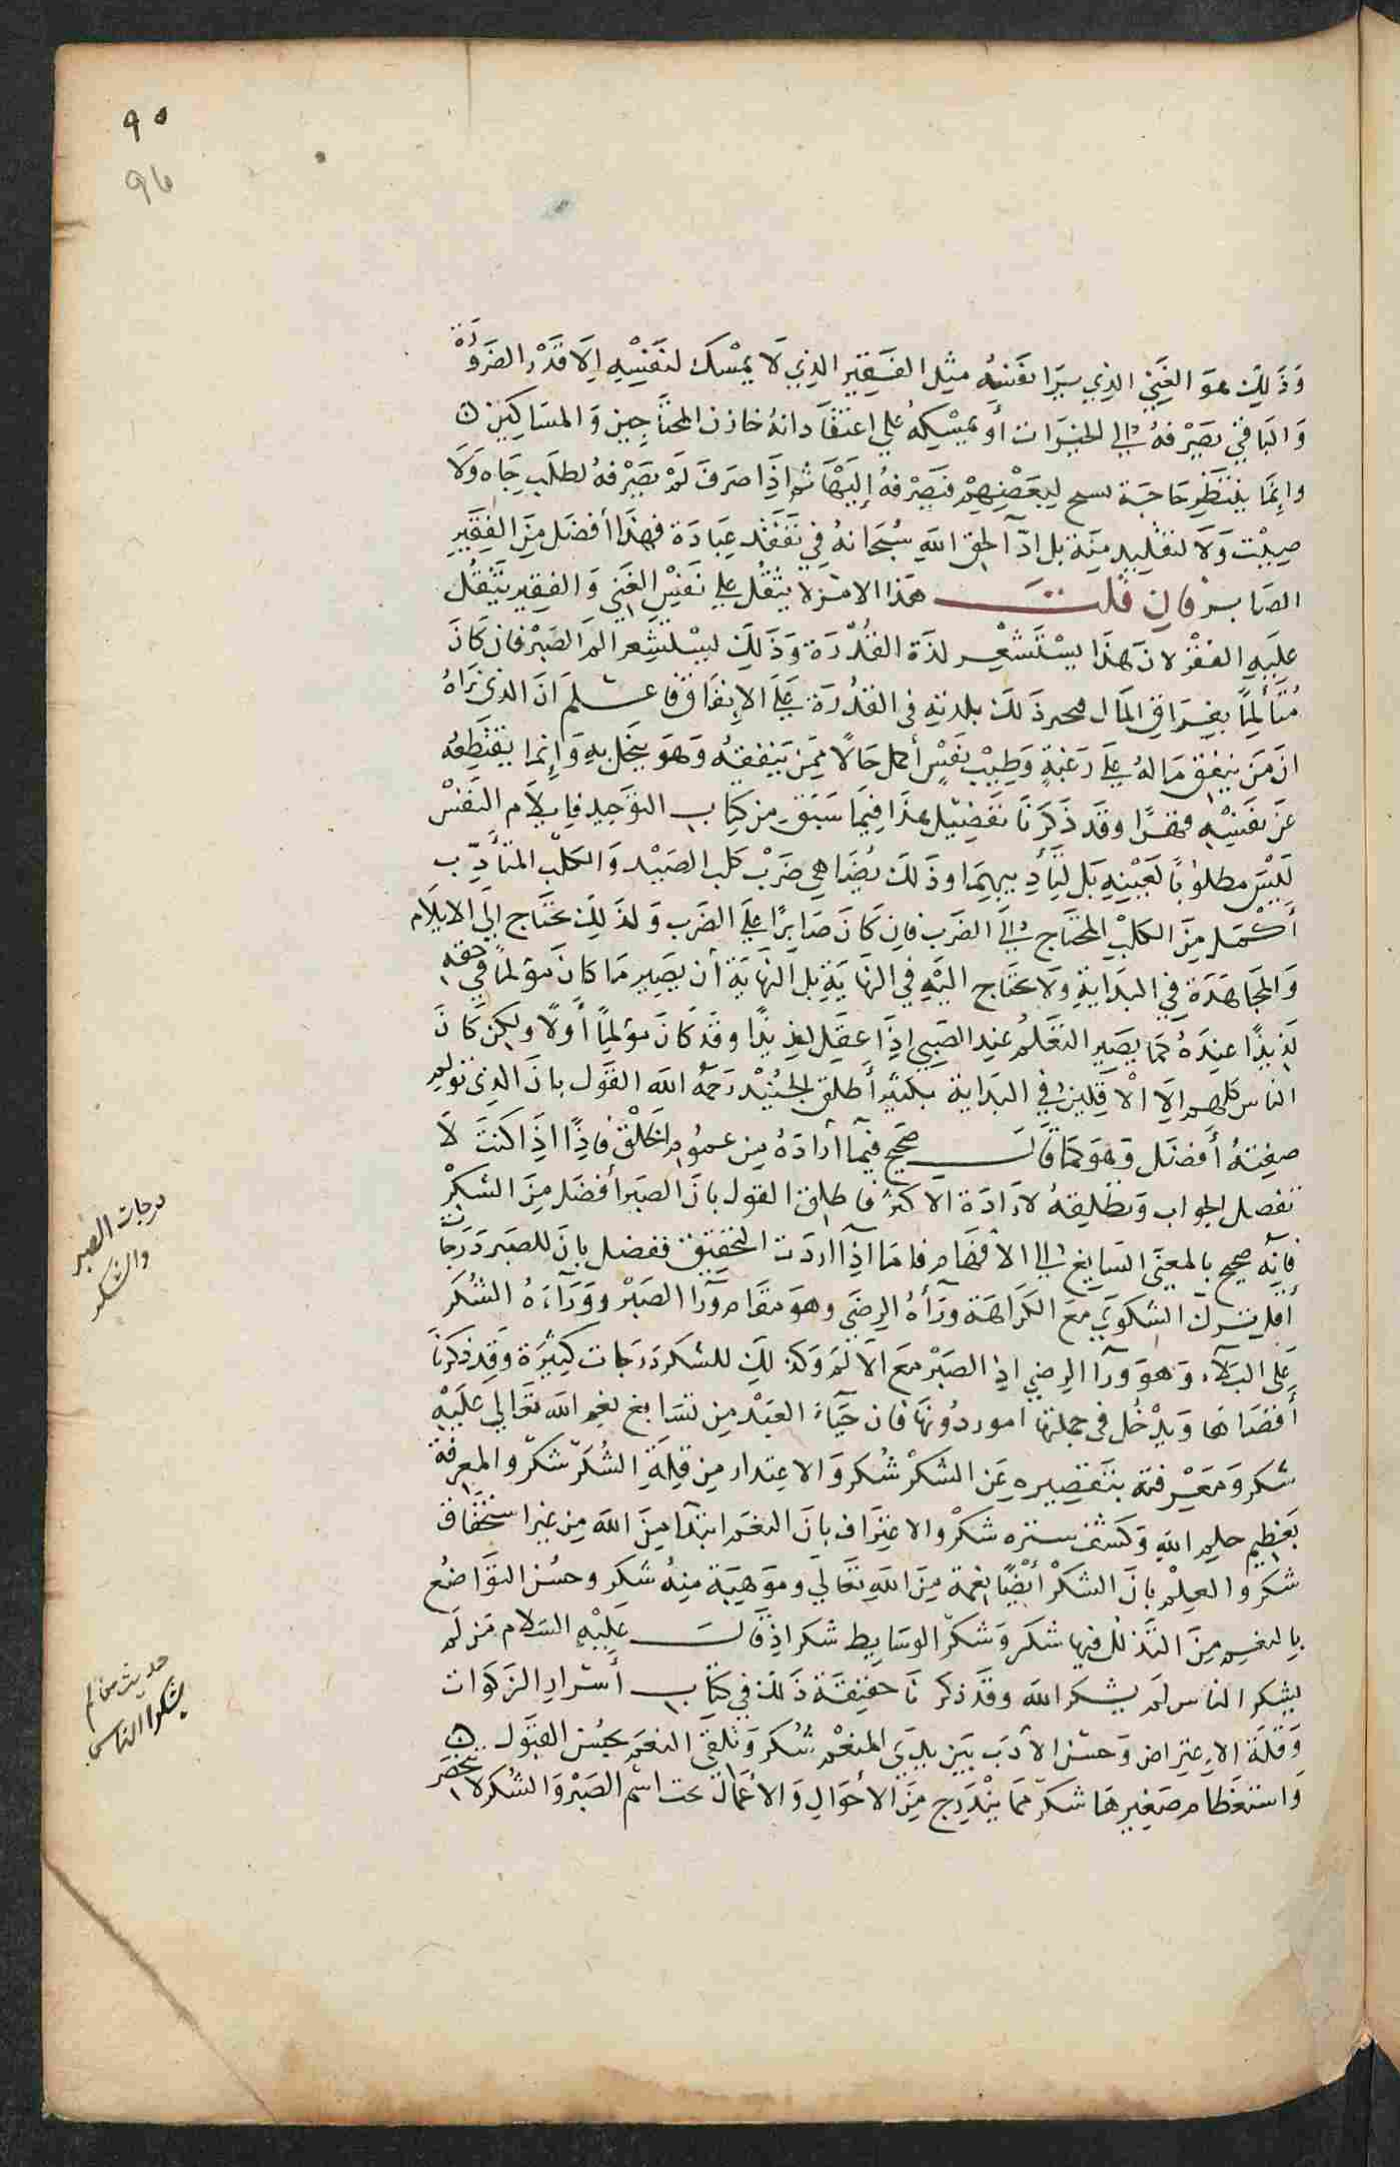 ٩٥
٩٦
وَذَلِكَ هو الغَنِيّ الذِي يرَا نفسَهُ مثِل الفَقِير الذِي لَا يمْسك لنفسِهِ اِلَا قدْر الضرُورَة
وَالبَاقِي يصْرفهُ الي الخيْرات أو يمْسِكهُ علي اعتقاد انهُ خازن المحتَاجِين وَالمسَاكِين
وَإنِمَا ينتظِر حَاجَة تسنح لِبعَضْهِمْ فيَصْرفهُ إليْهَا ثم اِذَا صَرَفَ لَمْ يصَرْفهُ لطلَبِ جَاه وَلَا
صِيْت وَلَا لتقليد مِنَة بل ادآ لحِق الله سُبحَانهُ فِي تفَقْد عِبَادَه فهذَا أفضَل مِنَ الفَقِير
الصَابر فان قلت هَذا الامْر لا يثقُل علي نفسْ الغَنِي وَالفقِير يثقُل
علَيهِ الفقْر لانَ هَذا يسْتَشْعِر لذة القُدْرَة وَذَلِكَ يسْتشعِر المَ الصَبْر فان كَانَ
مُتَألِمًا بفِرَاق المَال فينجبر ذَلكَ بلذتهِ في القدُرَة علَيَ الانِفَاق فاعلمَ انَ الذي نرَاهُ
انَ مَن ينفق مَالهُ علَيَ رَغبَةٍ وَطِيْب نفَسٍ أكمل حَالًا مِمَن ينفقهُ وَهوَ بخيل بهِ وَإنِما يقتطِعهُ
عَن نفسِه قهرًا وقَد ذَكَرنَا تفَضِيل هذَا فيمَا سَبَقَ مِن كِتاب التوَحِيد فايلاَم النَفسْ
ليْسَ مطلوُبًا لعَيْنهِ بَل لتَأدِيبهِمَا وذَلكَ يُضَاهِي ضَرْب كلب الصَيْد وَالكلْب المتأَدِّب
أكْمل مِنَ الكَلبْ المحتَاج الَي الضَرب فان كَانَ صَابرًا علَيَ الضَرب وَلذلِكَ يحتاَج الَي الايلاَم
وَالمجَاهَدَة فِي البدَايَةِ وَلَا يحتَاج اليْهِ فِي النهَايَةِ بل النهَايَة أن يصَيِر مَا كانَ مؤلمًا في حقهِ
لذِيذًا عِندَهُ كمَا يصَير التعَلمُ عنِد الصَبِي اِذَا عَقِل لذِيذًا وقَد كَانَ مؤلِمًا أَولًا ولكِن كَانَ
الناس كلهم الِاَ الْاَقلِين في البدَاية بكثير أطلَق الجُنيْد رَحمهُ الله القَول بانَ الذِي تؤلم
صفِتهُ أَفضَل وَهوَ كمَا قالَ صَحِيح فيمَا أرَادَهُ مِن عمُوم الخَلْق فاِذًا اذَا كنتَ لَا
تفَصل الجواب وَتطلِقهُ لارَادَة الْاَكثرَ فاطلق القول بانَ الصَبر أفضَل مِنَ الشكْر
فانِّه صحيح بالمعنَي السَايغ الي الافهَام فامَا آذِا اردَت التحقِيق ففصِل بانَ للصَبر دَرَجَات
أقلهَا ترك الشكوَي مَع الكَرَاهَة وَرَآهُ الرِضَي وهوَ مقَام وَرَآ الصَبْر وَوَرَآءَهُ الشُكر
عَلَي البلآء وَهوَ وَرَآ الرضي اذِ الصَبْر مَع اَلَالَم وَكذلِكَ للشكر دَرَجات كِثيْرَة وقَد ذَكَرنَا
أَقصَاهَا وَيدْخُل في جملتها امور دُونهَا فان حَيَآء العَبْد مِن تتَابع نعم الله تعَاليَ علَيْهِ
شكر وَمَعْرفته بتَقصِيره عَن الشكْر شُكر وَالاعِتذار مِن قلِةِ الشُكر شكر وَالمعرفة
بعَظيم حلم اللهِ وَكنف ستره شكْر والاعترَاف بانَ النعَم ابتدآ مِنَ الله مِن غير استحقاق
شكر والعِلْم بانَ الشكْر أيضًا نِعْمة مِنَ اللهِ تعَالَي وموَهِبَة مِنهُ شكر وحسُن التوَاضُع
بِالنعِم مِنَ التذَلل فيها شكر وَشكر الوسَايط شكر اذ قَالَ علَيْهِ السَلام مَن لَم
يشكر الناس لمَ يشكر الله وقَد ذكرنَا حَقيقة ذَلك في كتَاب أسْرار الزَكوَات
وَقلَة الاعِترَاض وَحسْن الأدَب بَين يدَي المنعْم شُكر وَتلقي النعَم بحسُن القبوَل
وَاستعظَام صَغِيرهَا شكر ممَا ينْدَرِج مِنَ الأحوَال وَالأعمَال تحت اسْم الصَبْر وَالشُكر لا ينحصِر
درجات الصبر
والشكر
حديث من لم
يشكر الناس